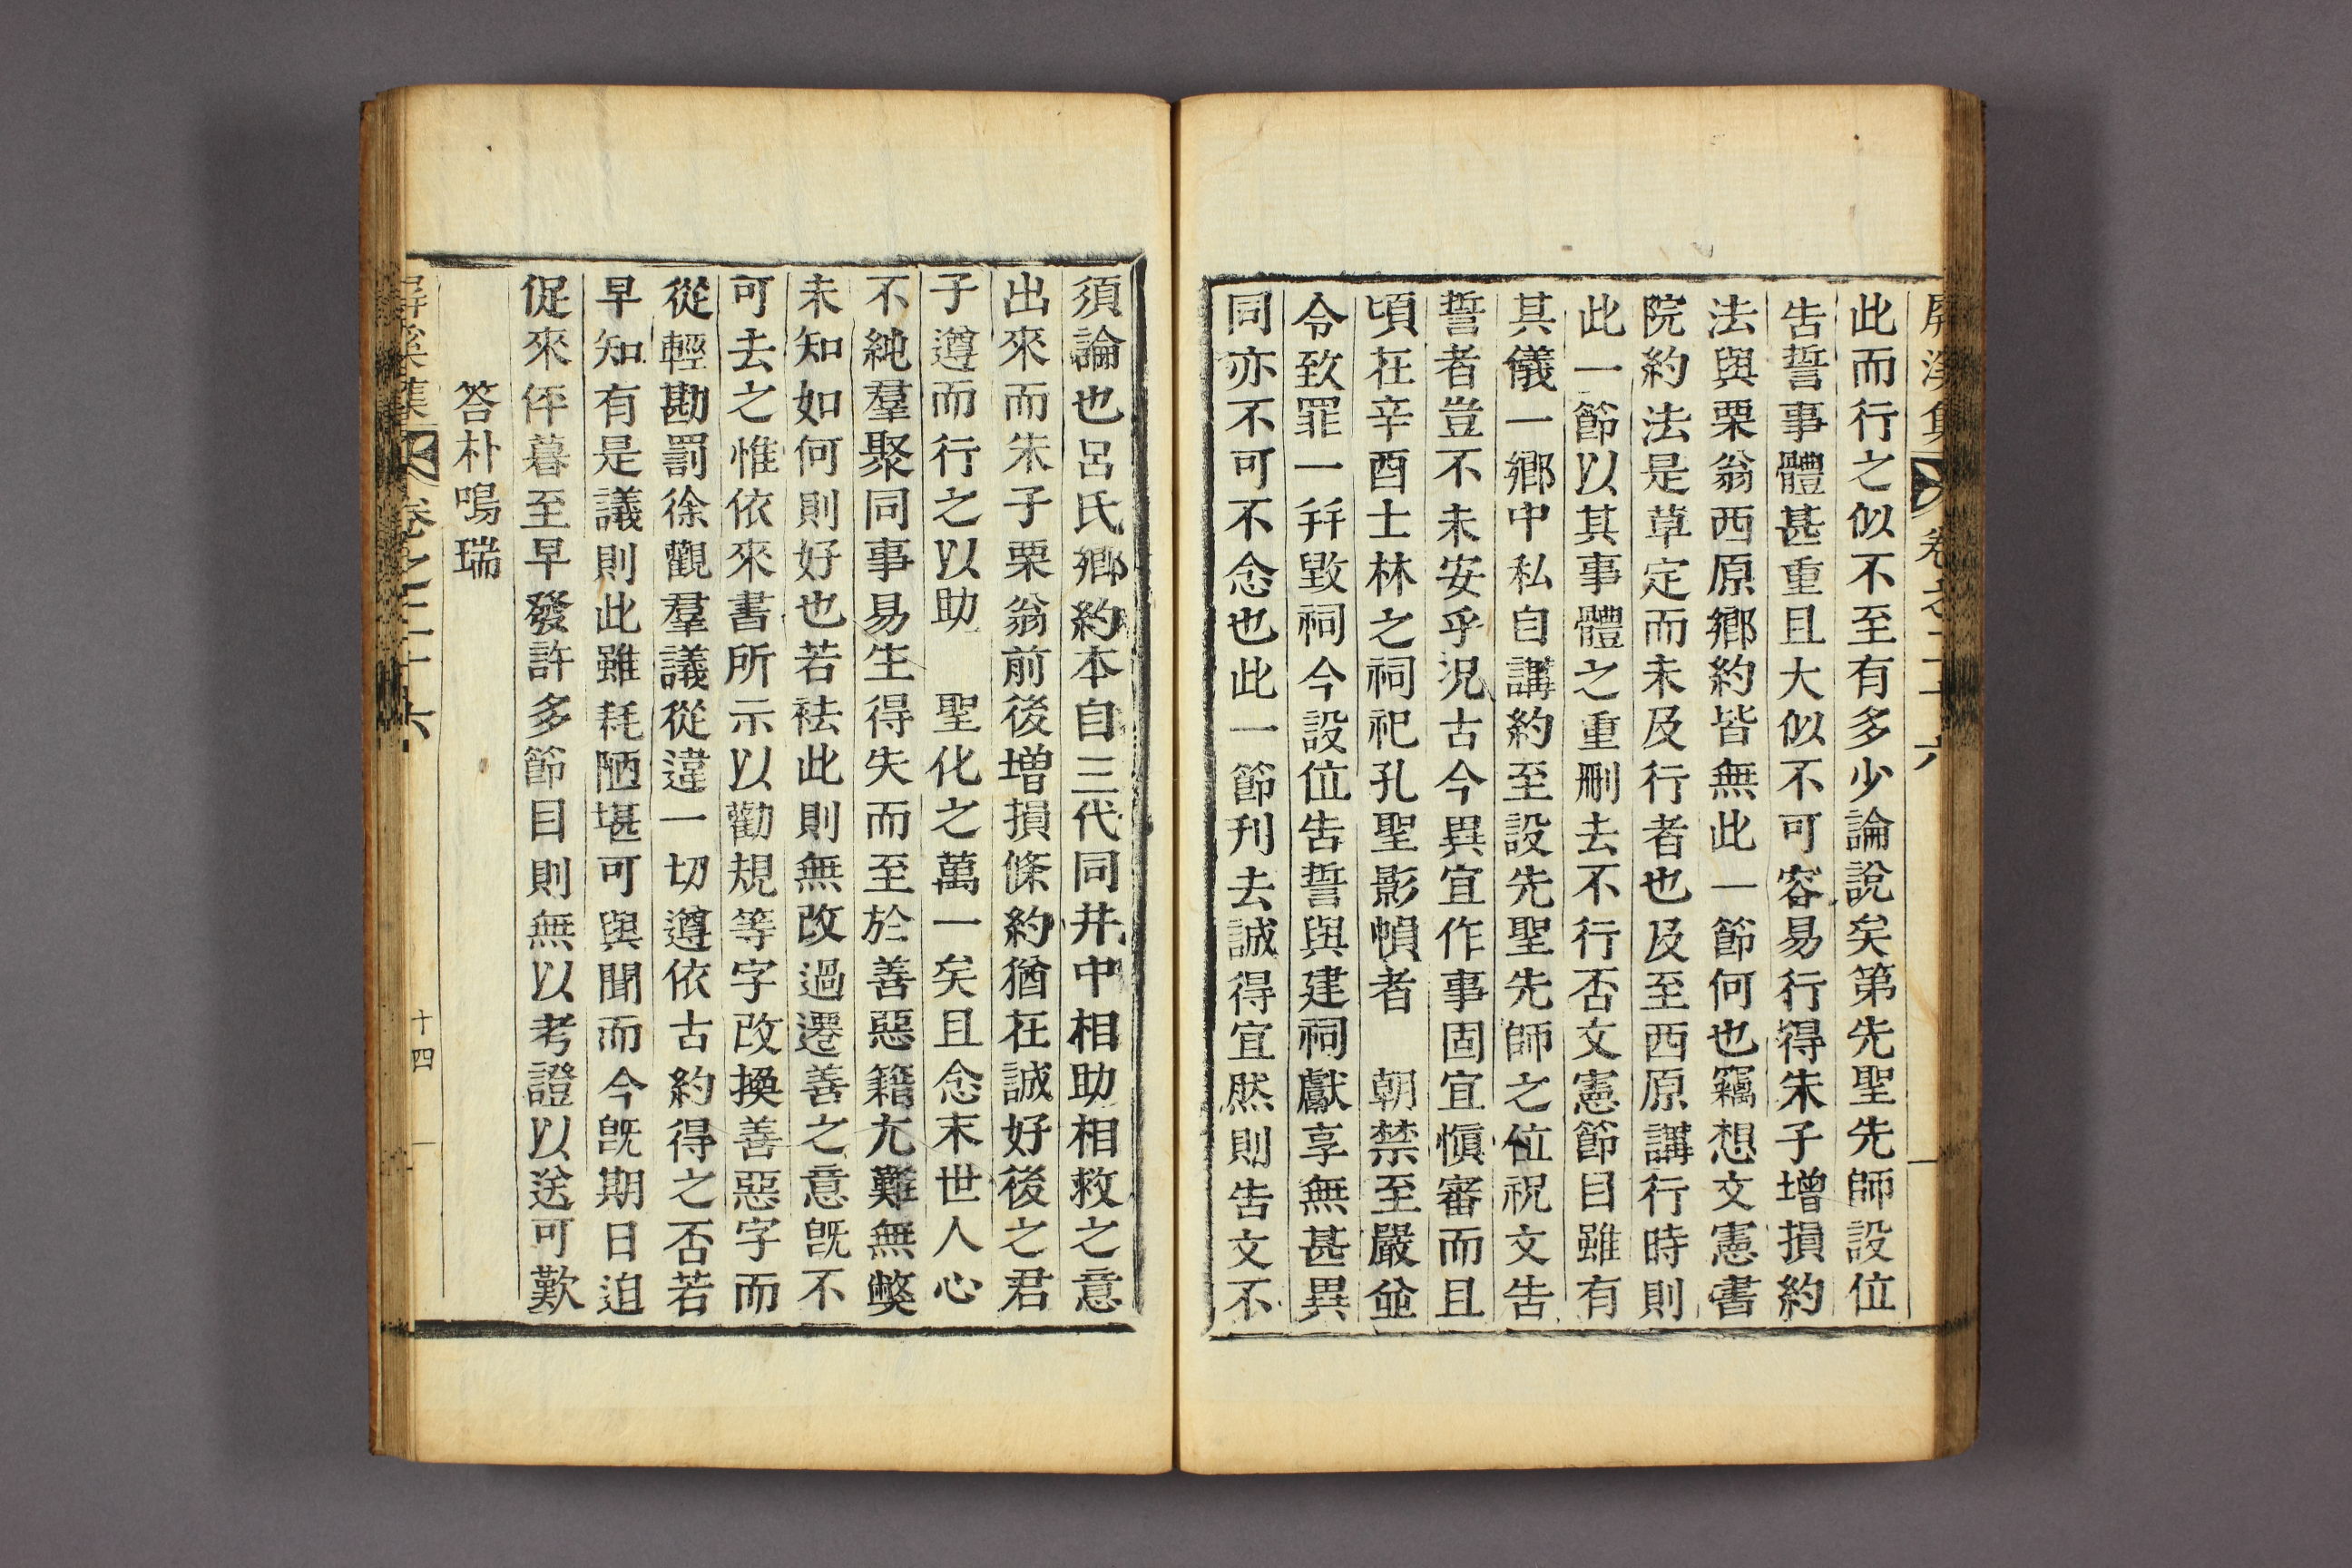 屛溪集 卷之二十六
此而行之似不至有多少論說矣第先聖先師設位
告誓事體甚重且大似不可容易行得朱子增損約
法與栗翁西原鄕約皆無此一節何也竊想文憲書
院約法是草定而未及行者也及至西原講行時則
此一節以其事體之重刪去不行否文憲節目雖有
其儀一鄕中私自講約至設先聖先師之位祝文告
誓者豈不未安乎況古今異宜作事固宜愼審而且
頃在辛酉士林之祠祀孔聖影幀者 朝禁至嚴並
令致罪一幷毁祠今設位告誓與建祠獻享無甚異
同亦不可不念也此一節刊去誠得宜然則告文不
須論也呂氏鄕約本自三代同井中相助相救之意
出來而朱子栗翁前後增損條約猶在誠好後之君
子遵而行之以助 聖化之萬一矣且念末世人心
不純羣聚同事易生得失而至於善惡籍尤難無獘
未知如何則好也若袪此則無改過遷善之意旣不
可去之惟依來書所示以勸規等字改換善惡字而
從輕勘罰徐觀羣議從違一切遵依古約得之否若
早知有是議則此雖耗陋堪可與聞而今旣期日迫
促來伻暮至早發許多節目則無以考證以送可歎
答朴鳴瑞
屛溪集 卷之二十六 十四